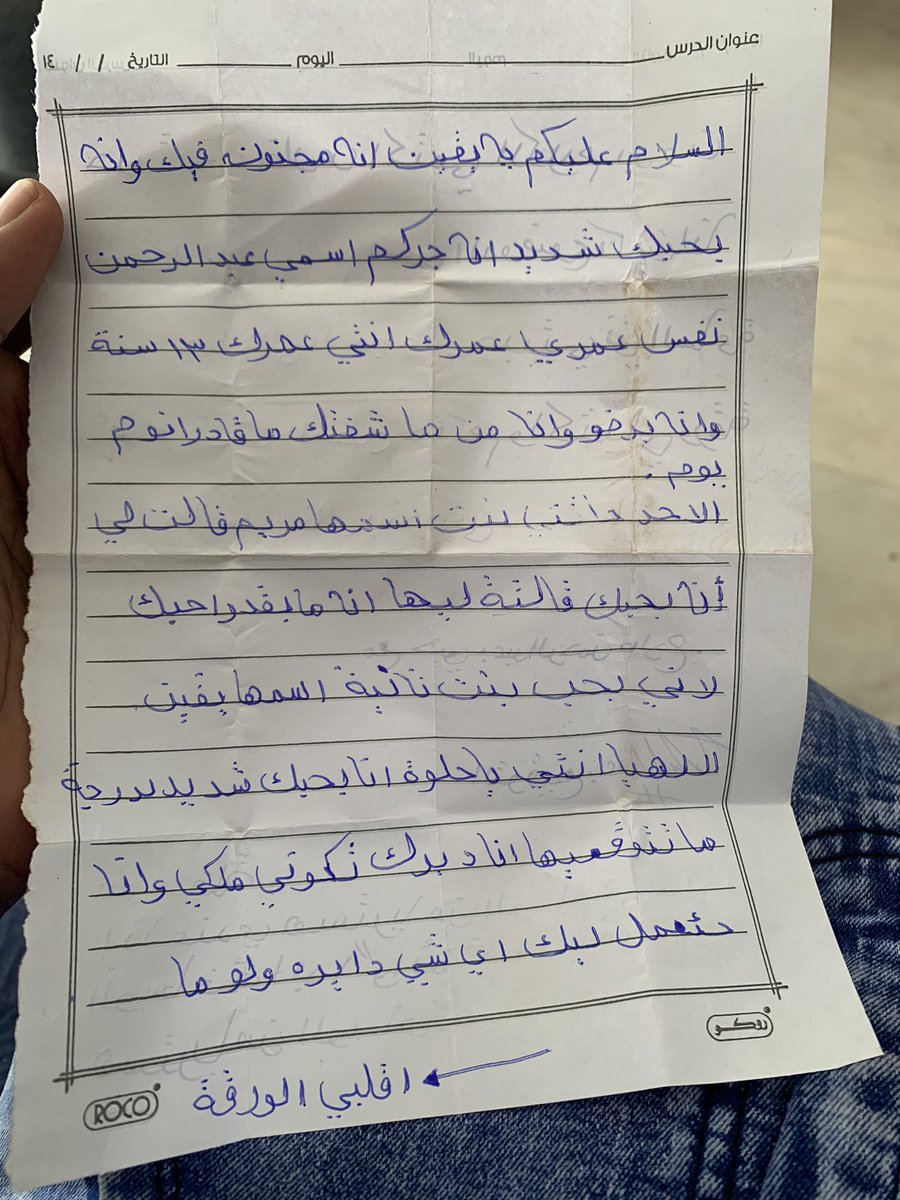 عنوان الدرس اليوم التاريخ / / ١٤
السلام عليكم يا يقين انا مجنونه فيك وانا
بحبك شديد انا جركم اسمي عبد الرحمن
نفس عمري عمرك انتي عمرك ١٣ سنة
وانا برضو وانا من ما شفتك ما قادر انوم
يوم.
الاحد جاتني بنت اسمها مريم قالت لي
أنا بحبك قالتة ليها انا ما بقدر احبك
لاني بحب بنت تانية اسمها يقين
اللهيا انتي يا حلوة انا بحبك شديد لدرجة
ما تتوقعيها انا دبرك تكوني ملكي وانا
حئعمل ليك اي شي دايره ولو ما
روكو
ROCO
اقلبي الورقة